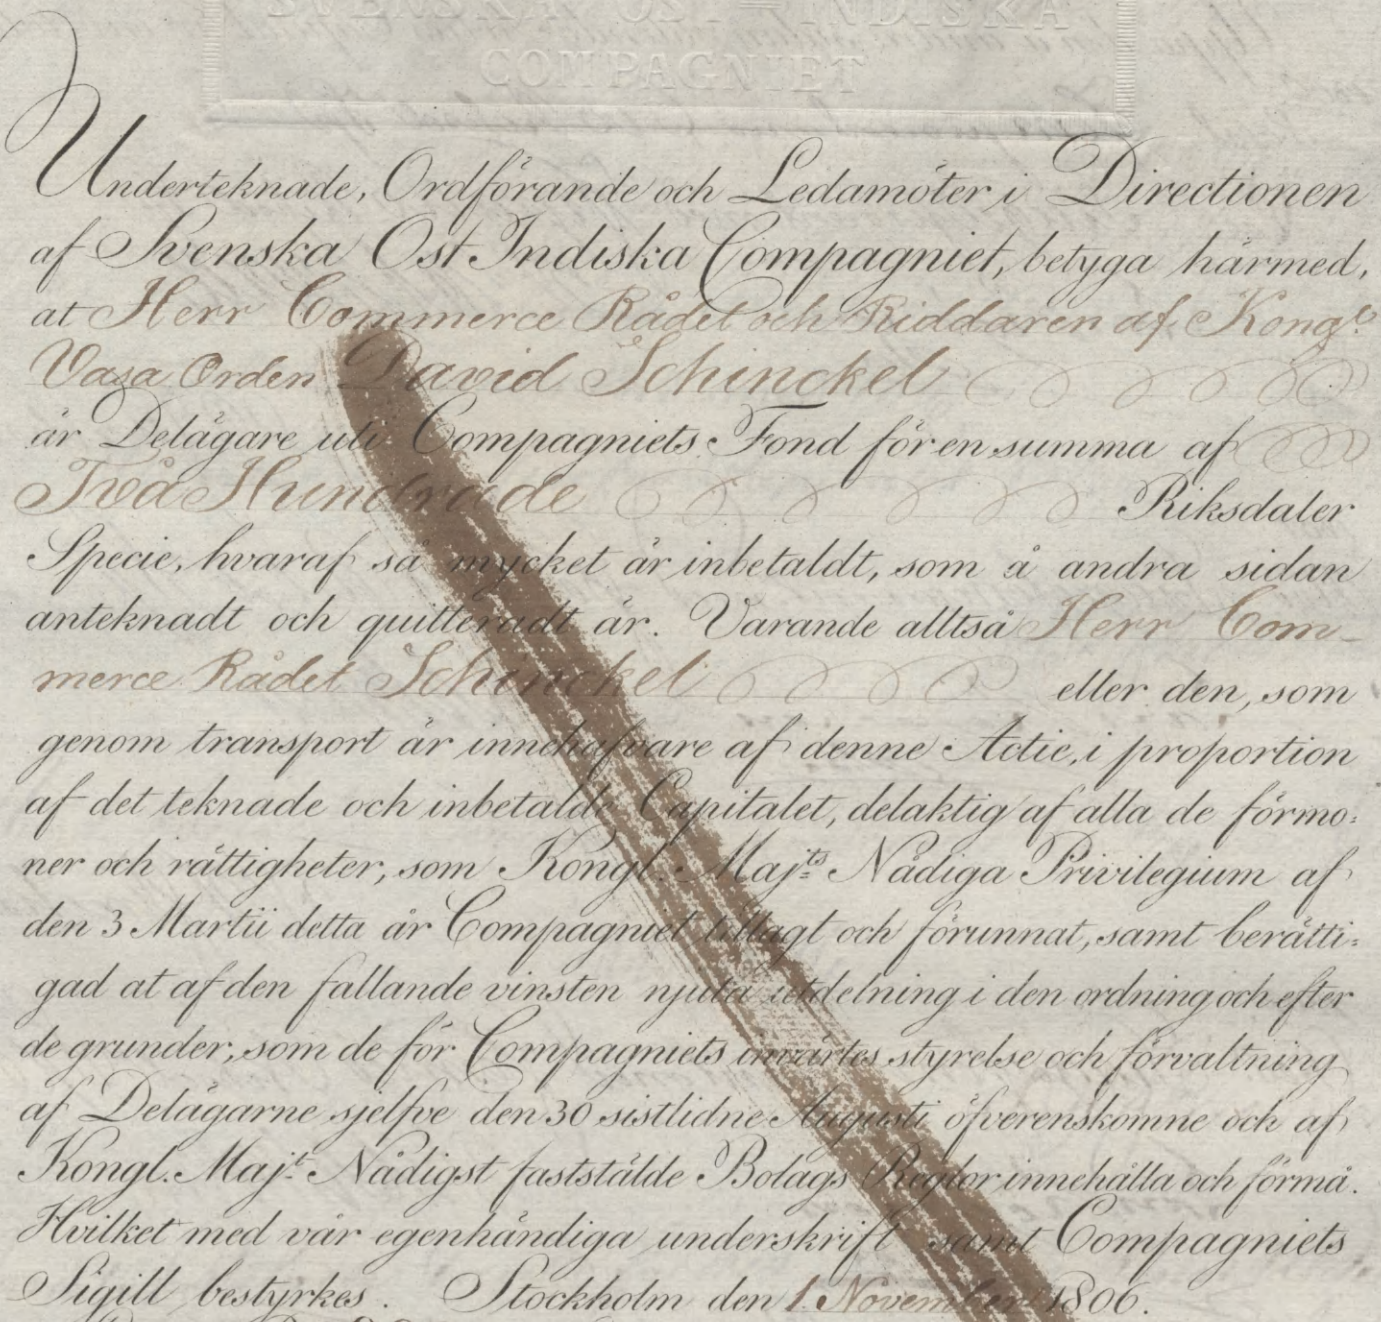 SVENSKA OST=INDISKA
COMPAGNIET
Underteknade, Ordförande och Ledamöter i Directionen
af Svenska Ost Indiska Compagniet, betyga härmed,
at Herr Commerce Rådet och Riddaren af Kongl.
Vasa Orden David Schinckel
är Delägare uti Compagniets Fond för en summa af
Två Hundrade Riksdaler
Specie, hvaraf så mycket är inbetaldt, som å andra sidan
anteknadt och quitteradt är. Varande alltså Herr Com-
merce Rådet Schinckel eller den, som
genom transport är innehafvare af denne Actie, i proportion
af det teknade och inbetalde Capitalet, delaktig af alla de förmo:
ner och rättigheter, som Kongl. Maj:ts Nådiga Privilegium af
den 3 Martii detta år Compagniet tillagt och förunnat, samt berätti:
gad at af den fallande vinsten njuta utdelning i den ordning och efter
de grunder, som de för Compagniets invärtes styrelse och förvaltning
af Delägarne sjelfve den 30 sistlidne Augusti öfverenskomne och af
Kongl. Maj:t Nådigst faststälde Bolags Reglor innehålla och förmå.
Hvilket med vår egenhändiga underskrift samt Compagniets
Sigill bestyrkes. Stockholm den 1 November 1806.